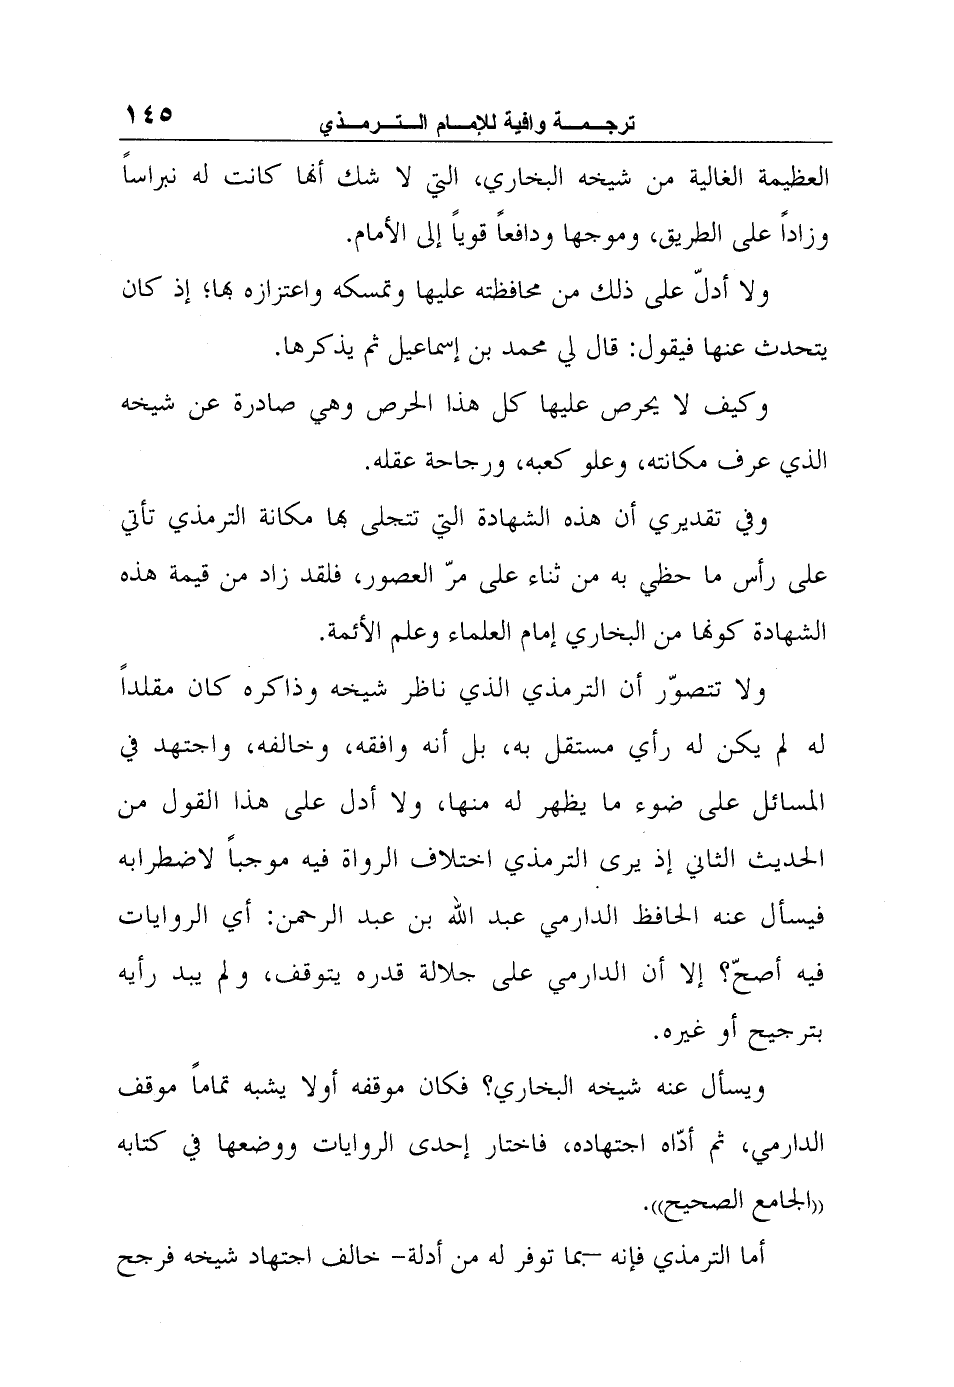 ترجمة وافية للإمام الترمذي ١٤٥
العظيمة الغالية من شيخه البخاري، التي لا شك أنها كانت له نبراساً
وزاداً على الطريق، وموجها ودافعاً قوياً إلى الأمام.
ولا أدلّ على ذلك من محافظته عليها وتمسكه واعتزازه بها؛ إذ كان
يتحدث عنها فيقول: قال لي محمد بن إسماعيل ثم يذكرها.
وكيف لا يحرص عليها كل هذا الحرص وهي صادرة عن شيخه
الذي عرف مكانته، وعلو كعبه، ورجاحة عقله.
وفي تقديري أن هذه الشهادة التي تتجلى بها مكانة الترمذي تأتي
على رأس ما حظي به من ثناء على مرّ العصور، فلقد زاد من قيمة هذه
الشهادة كونها من البخاري إمام العلماء وعلم الأئمة.
ولا تتصوّر أن الترمذي الذي ناظر شيخه وذاكره كان مقلداً
له لم يكن له رأي مستقل به، بل أنه وافقه، وخالفه، واجتهد في
المسائل على ضوء ما يظهر له منها، ولا أدل على هذا القول من
الحديث الثاني إذ يرى الترمذي اختلاف الرواة فيه موجباً لاضطرابه
فيسأل عنه الحافظ الدارمي عبد الله بن عبد الرحمن: أي الروايات
فيه أصحّ؟ إلا أن الدارمي على جلالة قدره يتوقف، ولم يبد رأيه
بترجيح أو غيره.
ويسأل عنه شيخه البخاري؟ فكان موقفه أولا يشبه تماماً موقف
الدارمي، ثم أدّاه اجتهاده، فاختار إحدى الروايات ووضعها في كتابه
((الجامع الصحيح)).
أما الترمذي فإنه –بما توفر له من أدلة– خالف اجتهاد شيخه فرجح